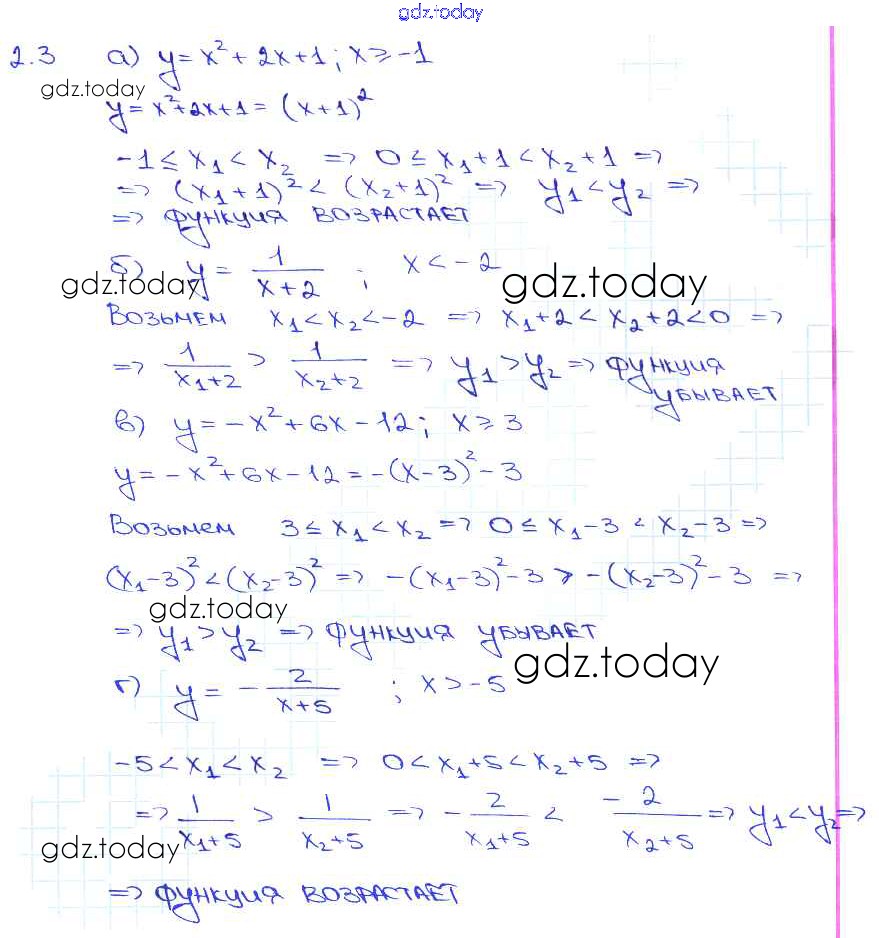 gdz.today
2.3 а) y = x² + 2x + 1; x ≥ -1
gdz.today
y = x² + 2x + 1 = (x + 1)²
-1 ≤ x₁ < x₂ => 0 ≤ x₁ + 1 < x₂ + 1 =>
=> (x₁ + 1)² < (x₂ + 1)² => y₁ < y₂ =>
=> функция возрастает
б) y = 1/(x + 2) ; x < -2
gdz.today gdz.today
Возьмем x₁ < x₂ < -2 => x₁ + 2 < x₂ + 2 < 0 =>
=> 1/(x₁ + 2) > 1/(x₂ + 2) => y₁ > y₂ => функция
убывает
в) y = -x² + 6x - 12; x ≥ 3
y = -x² + 6x - 12 = -(x - 3)² - 3
Возьмем 3 ≤ x₁ < x₂ => 0 ≤ x₁ - 3 < x₂ - 3 =>
(x₁ - 3)² < (x₂ - 3)² => -(x₁ - 3)² - 3 > -(x₂ - 3)² - 3 =>
gdz.today
=> y₁ > y₂ => функция убывает
gdz.today
г) y = - 2/(x + 5) ; x > -5
-5 < x₁ < x₂ => 0 < x₁ + 5 < x₂ + 5 =>
=> 1/(x₁ + 5) > 1/(x₂ + 5) => - 2/(x₁ + 5) < -2/(x₂ + 5) => y₁ < y₂ =>
gdz.today
=> функция возрастает